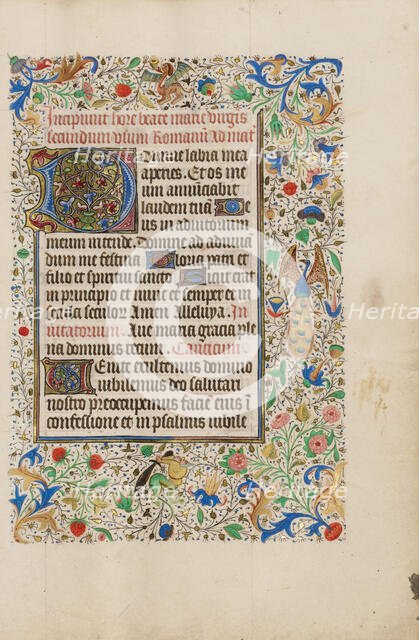 Incipiunt hore beate marie virgis
secundum usum Romanum Ad mat
Domine labia mea
aperies. Et os me
um annunciabit
laudem tuam De
us in adiutorium
meum intende. Domine ad adiuua
dum me festina Gloria patri et
filio et spiritui sancto Sicut erat
in principio et nunc et semper et in
secula seculor Amen Alleluya. In
uitatorium. Aue maria gracia ple
na dominus tecum. Canticum
Venite exultemus domino
iubilemus deo salutari
nostro preoccupemus faciē eius i
confessione et in psalmis iubile